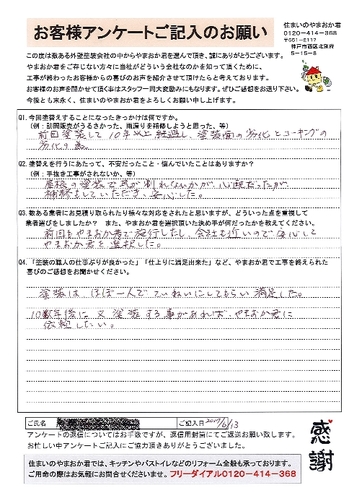 お客様アンケートご記入のお願い
住まいのやまおか君
0120-414-368
〒651-2117
神戸市西区北別府
5-15-8
この度は数ある外壁塗装会社の中からやまおか君を選んで頂き、誠にありがとうございます。
やまおか君をご存じない方々に当社がどういう会社なのかを知って頂くために、
工事が終わったお客様からの喜びのお声を紹介させて頂けたらと考えております。
お客様のお声を聞かせて頂く事はスタッフ一同大変励みにもなります。ぜひご感想をお送り下さい。
今後とも末永く、住まいのやまおか君をよろしくお願い申し上げます。
Q1.今回塗替えすることになったきっかけは何ですか。
(例:訪問販売がうるさかった、雨戻りを綺麗しようと思った、等)
前回塗装して10年以上経過し、塗装面の劣化とコーキングの
劣化の為。
Q2.塗替えを行うにあたって、不安だったこと・悩んでいたことはありますか?
(例:手抜き工事がされないか、等)
屋根の塗装で瓦が割れないかが心配だったが、
補修をしていただき、安心した。
Q3.数ある業者にお見積り取られたり様々な対応をされたと思いますが、どういった点を重視して
業者選びをしましたか? また、やまおか君を選択頂いた決め手が何だったかを教えてください。
前回もやまおか君で施行したし、会社も近いので安心して
やまおか君を選択した。
Q4.「塗装の職人の仕事ぶりが良かった」「仕上りに満足出来た」など、やまおか君で工事を終えられた
喜びのご感想をお聞かせください。
塗装は、ほぼ一人でていねいにしてもらい満足した。
10数年後に又塗装する事があれば、やまおか君に
依頼したい。
ご氏名
ご記入日
感謝
アンケートの返信についてはお手数ですが、返信用封筒にてご返送お願い致します。
お忙しい中アンケートにご協力頂き誠にありがとうございました。
住まいのやまおか君では、キッチンやバストイレなどのリフォーム全般も承っております。
ご用命の際はお気軽にお問合せくださいませ。フリーダイアル0120-414-368